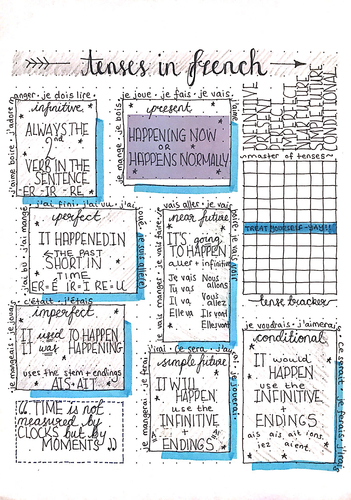 tenses in french
anger. je dois lire.
j'aime boire. j'adore m
infinitive
ALWAYS THE
2nd
VERB IN THE
SENTENCE
-ER -IR -RE
je joue. je fais. je vais.
je mange. je bois.
j'aime
present
HAPPENING NOW
OR
HAPPENS NORMALLY
PRESENT
PERFECT
IMPERFECT
NEAR FUTURE
SIMPLE FUTURE
CONDITIONAL
~master of tenses~
TREAT YOURSELF - YAY!!
tense tracker
j'ai fini. j'ai vu. j'ai
j'ai bu. j'ai mangé
perfect
IT HAPPENED IN
THE PAST
SHORT IN
TIME
ER-É IR-I RE-U
vais aller. je vais
vais manger. je vais faire.
near future
IT'S going
TO HAPPEN
aller + infinitive
Je vais Nous
Tu vas allons
Il va Vous
allez
Elle va Ils vont
Elles vont
c'était. j'étais
je mangeais. je
imperfect
IT used TO HAPPEN
was HAPPENING
uses the stem + endings
AIS. AIT
j'irai. ce sera. j'au
je mangerai. je ferai
je jouerai.
simple future
IT WILL
HAPPEN
use the
INFINITIVE
+
ENDINGS
je voudrais. j'aimerai
ce serait. je ferais. j'irais
conditional
IT would
HAPPEN
use the
INFINITIVE
+
ENDINGS
ais ais ait ions
iez aient
"TIME is not
measured by
CLOCKS but by
MOMENTS"